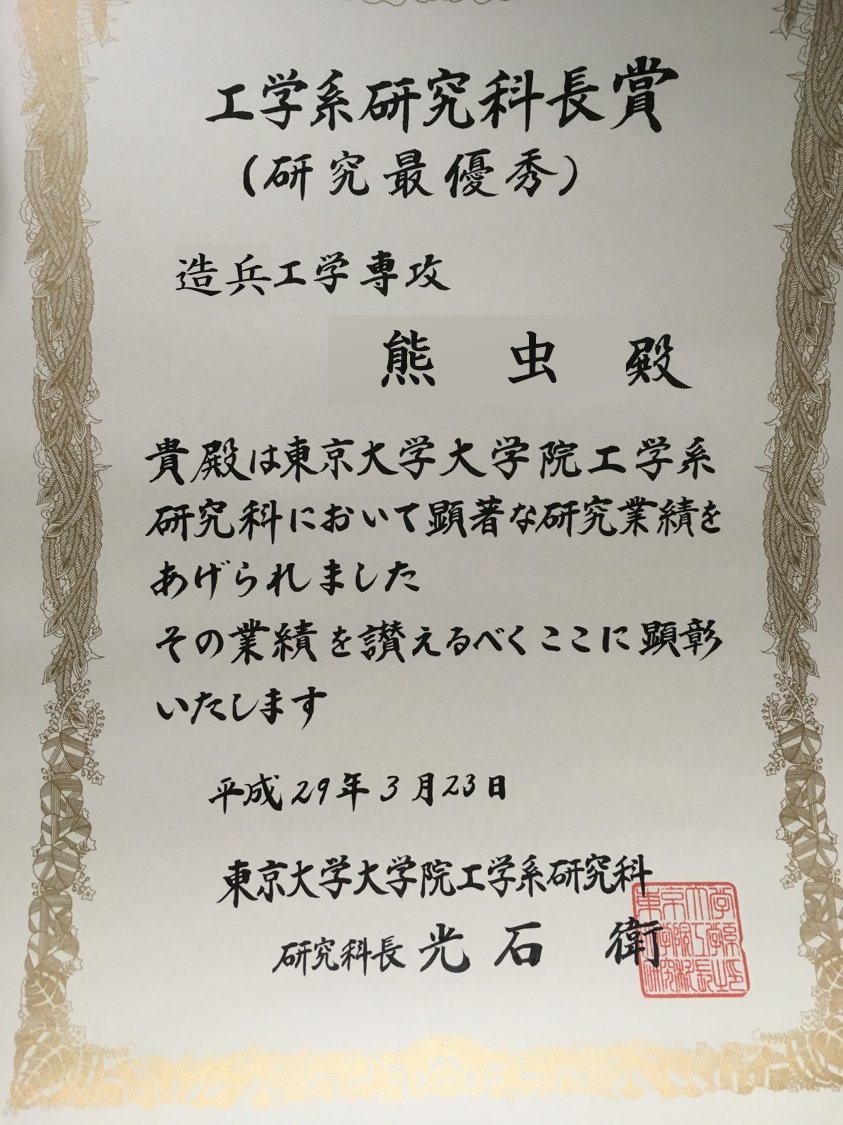 工学系研究科長賞
（研究最優秀）
造兵工学専攻
熊 虫 殿
貴殿は東京大学大学院工学系
研究科において顕著な研究業績を
あげられました
その業績を讃えるべくここに顕彰
いたします
平成29年3月23日
東京大学大学院工学系研究科
研究科長 光石 衛